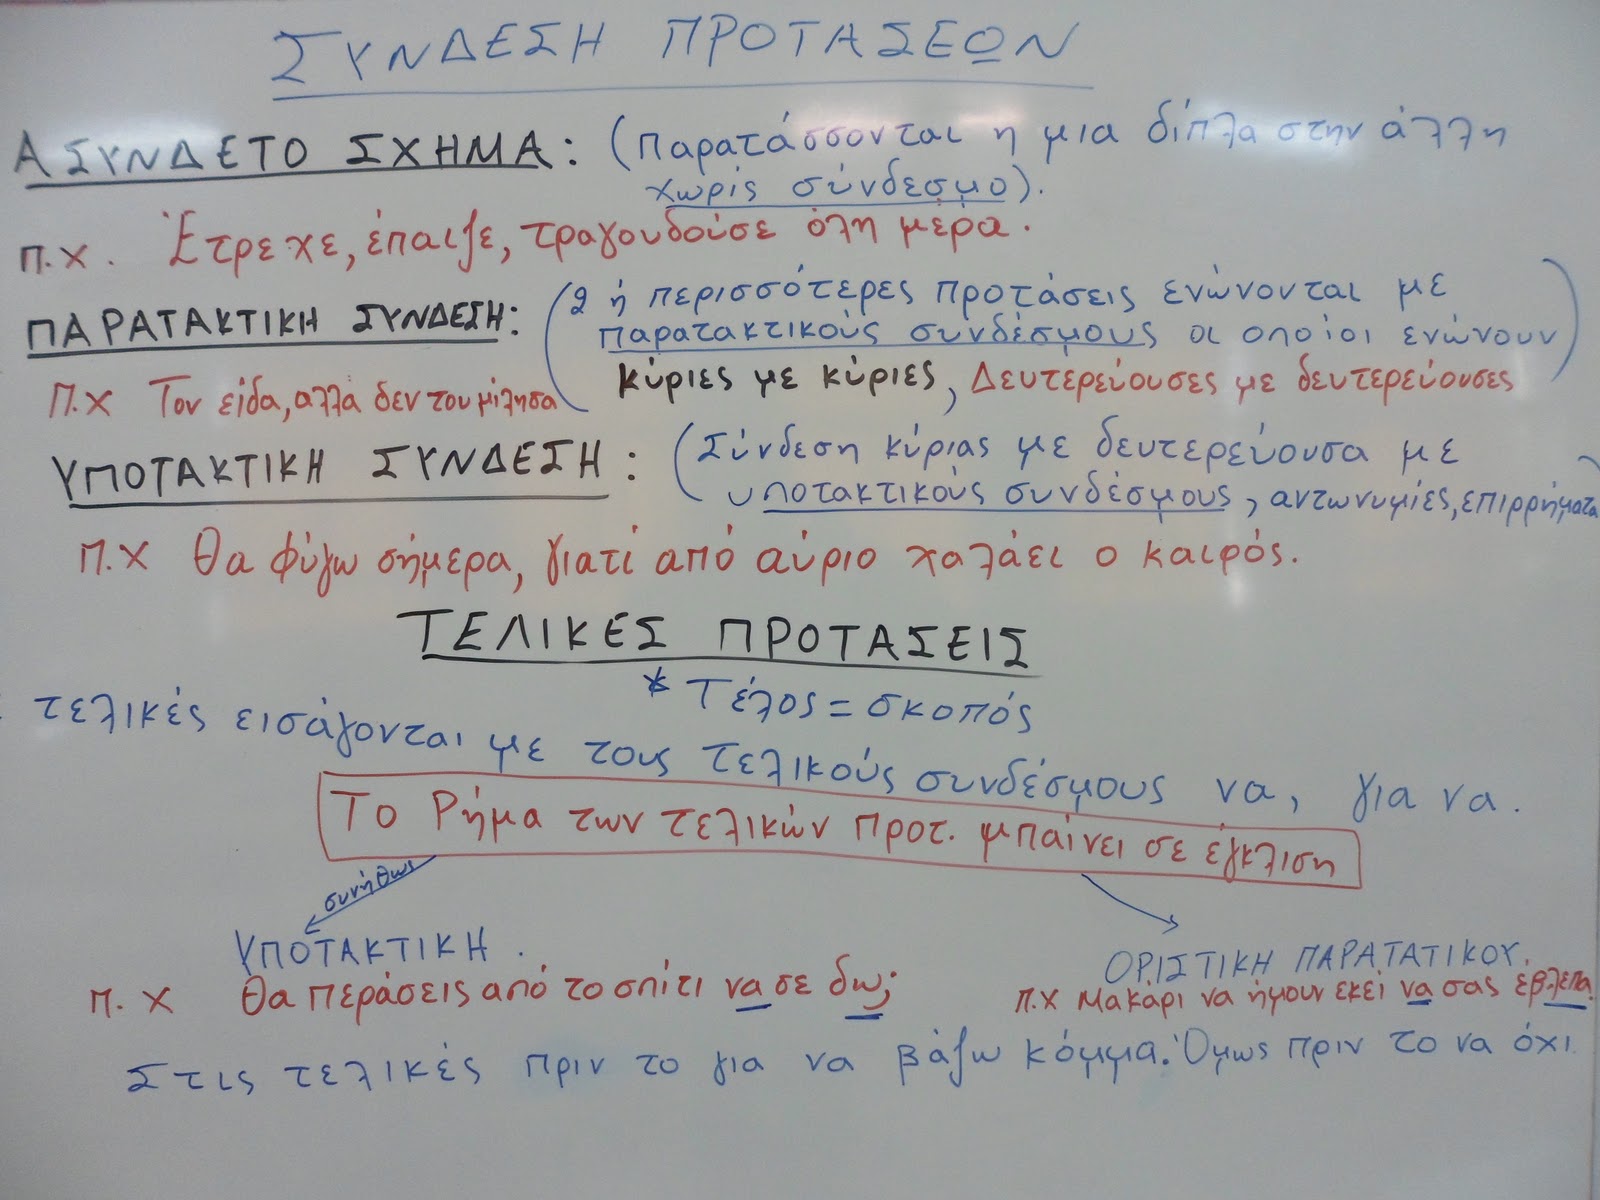 ΣΥΝΔΕΣΗ ΠΡΟΤΑΣΕΩΝ
ΑΣΥΝΔΕΤΟ ΣΧΗΜΑ: (Παρατάσσονται η μια δίπλα στην άλλη
χωρίς σύνδεσμο).
π.χ. Έτρεχε, έπαιξε, τραγουδούσε όλη μέρα.
ΠΑΡΑΤΑΚΤΙΚΗ ΣΥΝΔΕΣΗ: (2 ή περισσότερες προτάσεις ενώνονται με
παρατακτικούς συνδέσμους οι οποίοι ενώνουν)
Π.Χ Τον είδα, αλλά δεν του μίλησα κύριες με κύριες, Δευτερεύουσες με δευτερεύουσες
ΥΠΟΤΑΚΤΙΚΗ ΣΥΝΔΕΣΗ: (Σύνδεση κύριας με δευτερεύουσα με
υποτακτικούς συνδέσμους, αντωνυμίες, επιρρήματα)
Π.Χ Θα φύγω σήμερα, γιατί από αύριο χαλάει ο καιρός.
ΤΕΛΙΚΕΣ ΠΡΟΤΑΣΕΙΣ
* Τέλος = σκοπός
τελικές εισάγονται με τους τελικούς συνδέσμους να, για να.
Το Ρήμα των τελικών προτ. μπαίνει σε έγκλιση
συνήθως
ΥΠΟΤΑΚΤΙΚΗ. ΟΡΙΣΤΙΚΗ ΠΑΡΑΤΑΤΙΚΟΥ.
π.χ Θα περάσεις από το σπίτι να σε δω; π.χ Μακάρι να ήμουν εκεί να σας έβλεπα.
Στις τελικές πριν το για να βάζω κόμμα. Όμως πριν το να όχι.